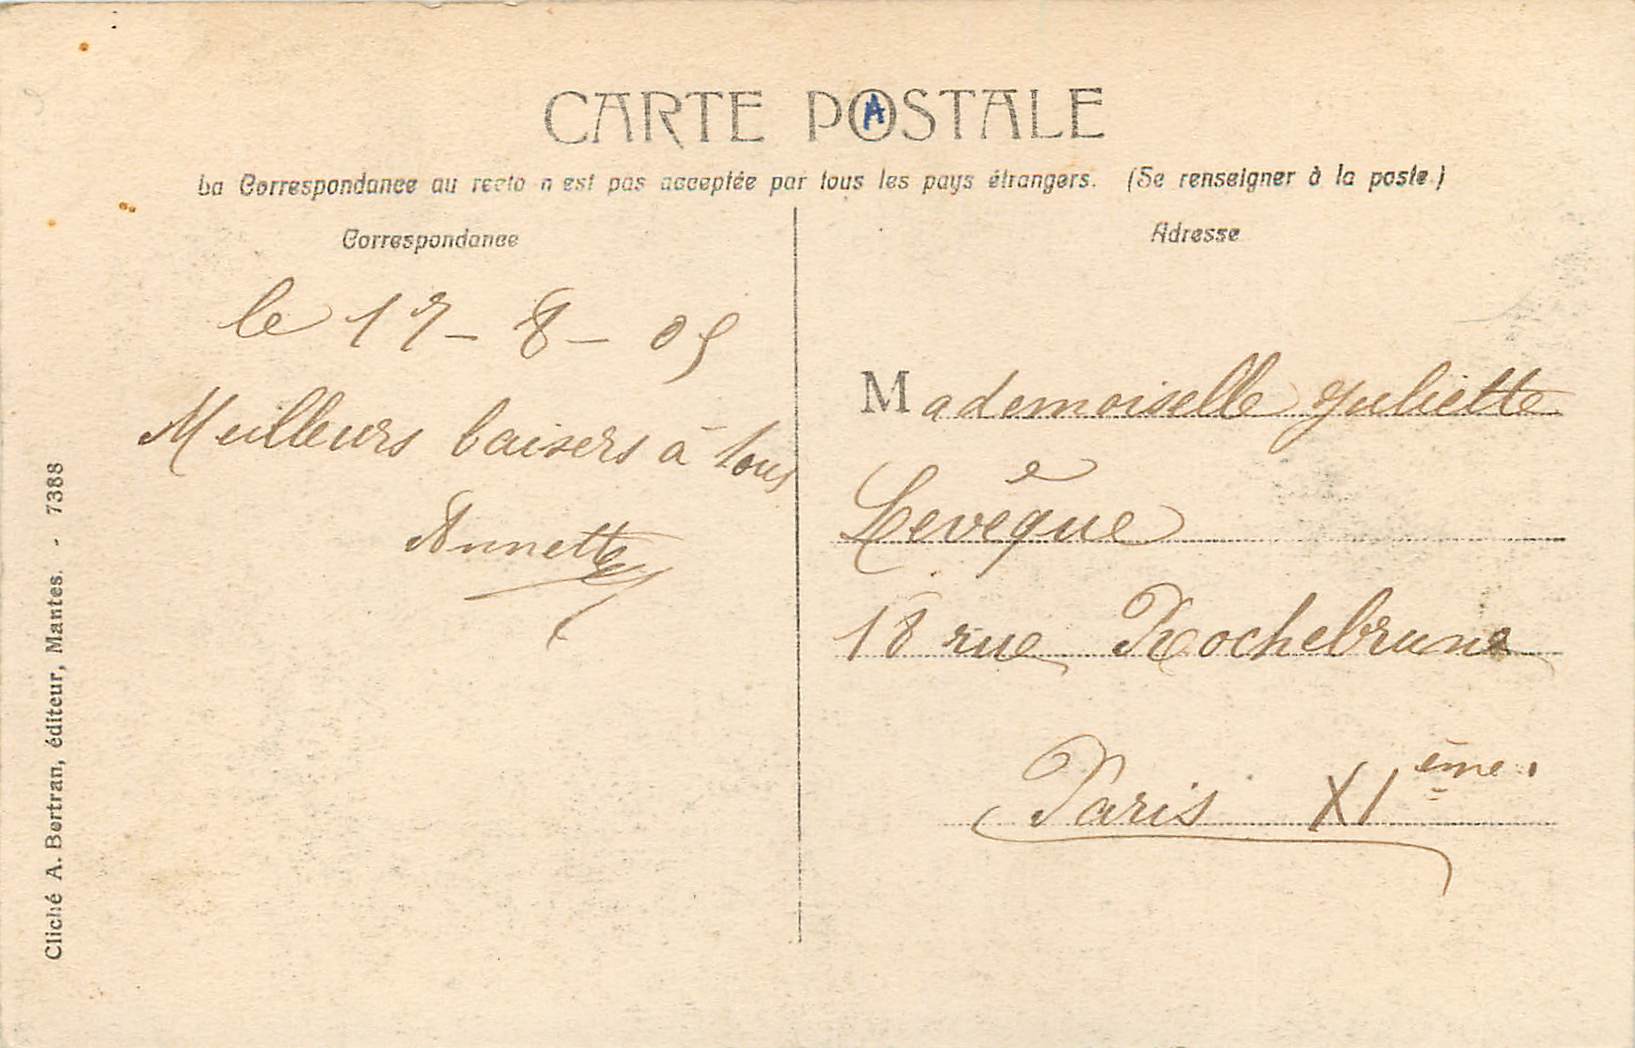 CARTE POSTALE
A
La Correspondance au recto n'est pas acceptée par tous les pays étrangers. (Se renseigner à la poste.)
Correspondance
le 17-8-05
Meilleurs baisers à tous
Annette
Adresse
Mademoiselle Juliette
Levêque
18 rue Rochebrune
Paris XIème.
Cliché A. Bertran, éditeur, Mantes. - 7388